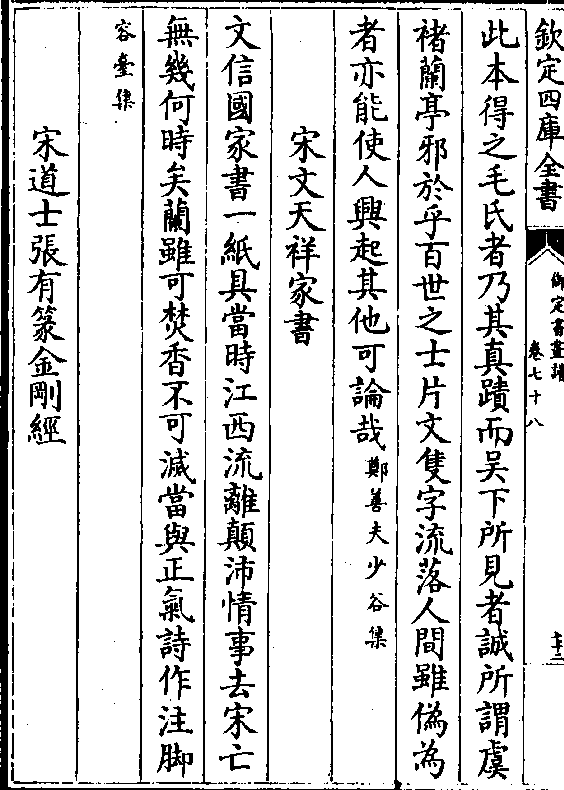 欽定四庫全書
御定書畫譜
卷七十八
十二
此本得之毛氏者乃其真蹟而吳下所見者誠所謂虞
褚蘭亭邪於乎百世之士片文隻字流落人間雖偽為
者亦能使人興起其他可論哉鄭善夫少谷集
宋文天祥家書
文信國家書一紙具當時江西流離顛沛情事去宋亡
無幾何時矣蘭雖可焚香不可滅當與正氣詩作注脚
容臺集
宋道士張有篆金剛經